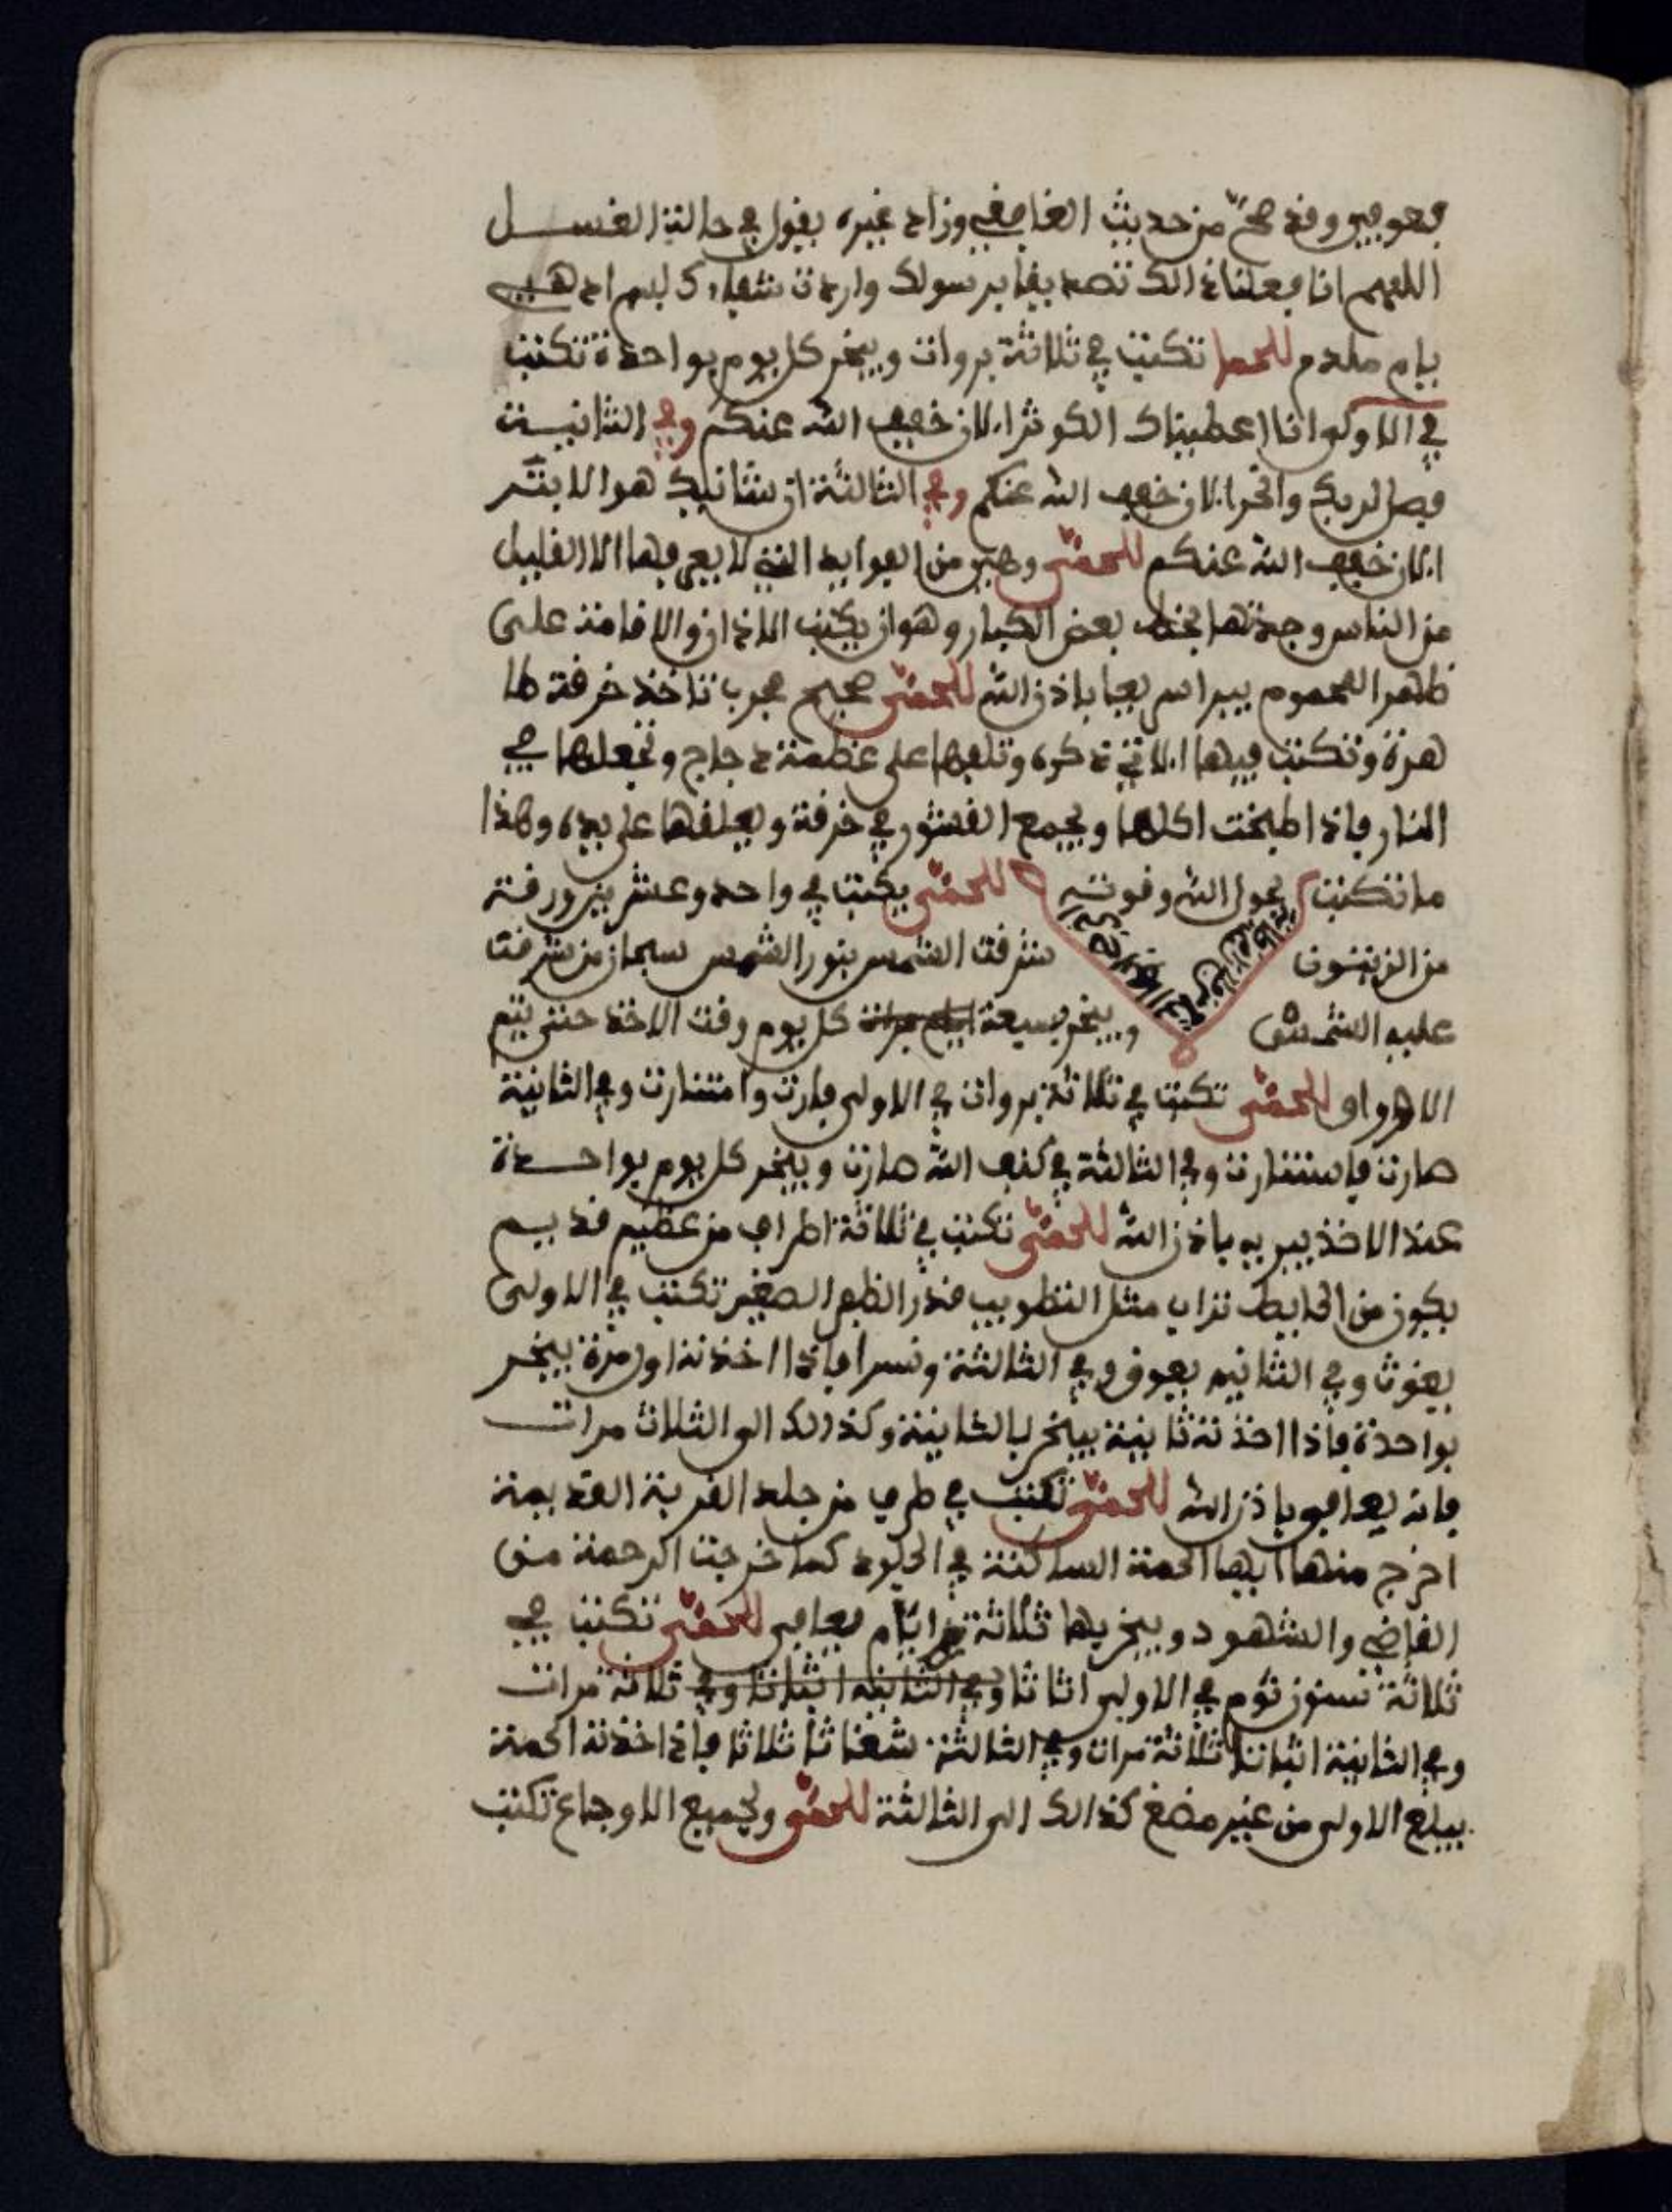 فعوفي وقد صح من حديث وزاد غيره يقول في حالة الغسل
اللهم انا فعلنا ذالك تصديقا برسولك واردت شفاءك ادهبي
يام ملدم للحما تكتب في ثلاثة بروات ويبخر كل يوم بواحدة تكتب
في الاولى انا اعطيناك الكوثر الان خفف الله عنكم وفي الثانية
فصل لربك وانحر الان خفف الله عنكم وفي الثالثة ان شانيك هو الابتر
الان خفف الله عنكم للحمى وهي من الفوايد التي لا يعرفها الا القليل
من الناس وجدتها بخط بعض الكبار وهو ان يكتب الاذان والاقامة على
ظهر المحموم يبرا سريعا باذن الله للحمى صحيح مجرب تاخذ خرقة طا
هرة وتكتب فيها الاتي ذكره وتلفها على عظمة دجاج وتجعلها في
النار فاذا طبخت اكلها ويجمع القشور في خرقة ويعلقها على يده وهذا
ما تكتب بحول الله وقوته للحمى يكتب في واحد وعشرين ورقة
من الزيتون شرقت الشمس بنور الشمس سبحان من شرقت
عليه الشمس ويبخر بسبعة ايام مرات كل يوم وقت الاخذ حتى يتم
الاهراو للحمى تكتب في ثلاثة بروات في الاولى فارت وامتنارت وفي الثانية
هارت فاستنارت وفي الثالثة في كنف الله هارت ويبخر كل يوم بواحدة
عند الاخذ يبريه باذن الله للحمى تكتب في ثلاثة اطراف من عظيم قديم
يكون من الحايط تراب مثل التطويب قدر الظفر الصغير تكتب في الاولى
يغوث وفي الثانيه يعوق وفي الثالثة ونسرا فاذا اخذته اول مرة يبخر
بواحدة فاذا اخذته ثانية يبخر بالثانية وكذلك الى الثلاث مرات
فانه يعافى باذن الله للحمى تكتب في طرف من جلد القربة القديمة
اخرج منها ايها الحمة الساكنة في الجلود كما خرجت الرحمة من
القاضي والشهود ويبخر بها ثلاثة ايام يعافى للحمى تكتب في
ثلاثة سنون ثوم في الاولى اثا ثا وفي الثانية اثباتا وفي ثلاثة مرات
وفي الثانية اثباتا ثلاثة مرات وفي الثالثة ثلاثا فاذا اخذته الحمة
يبلع الاولى من غير مضغ كذالك الى الثالثة للحمى ولجميع الاوجاع تكتب